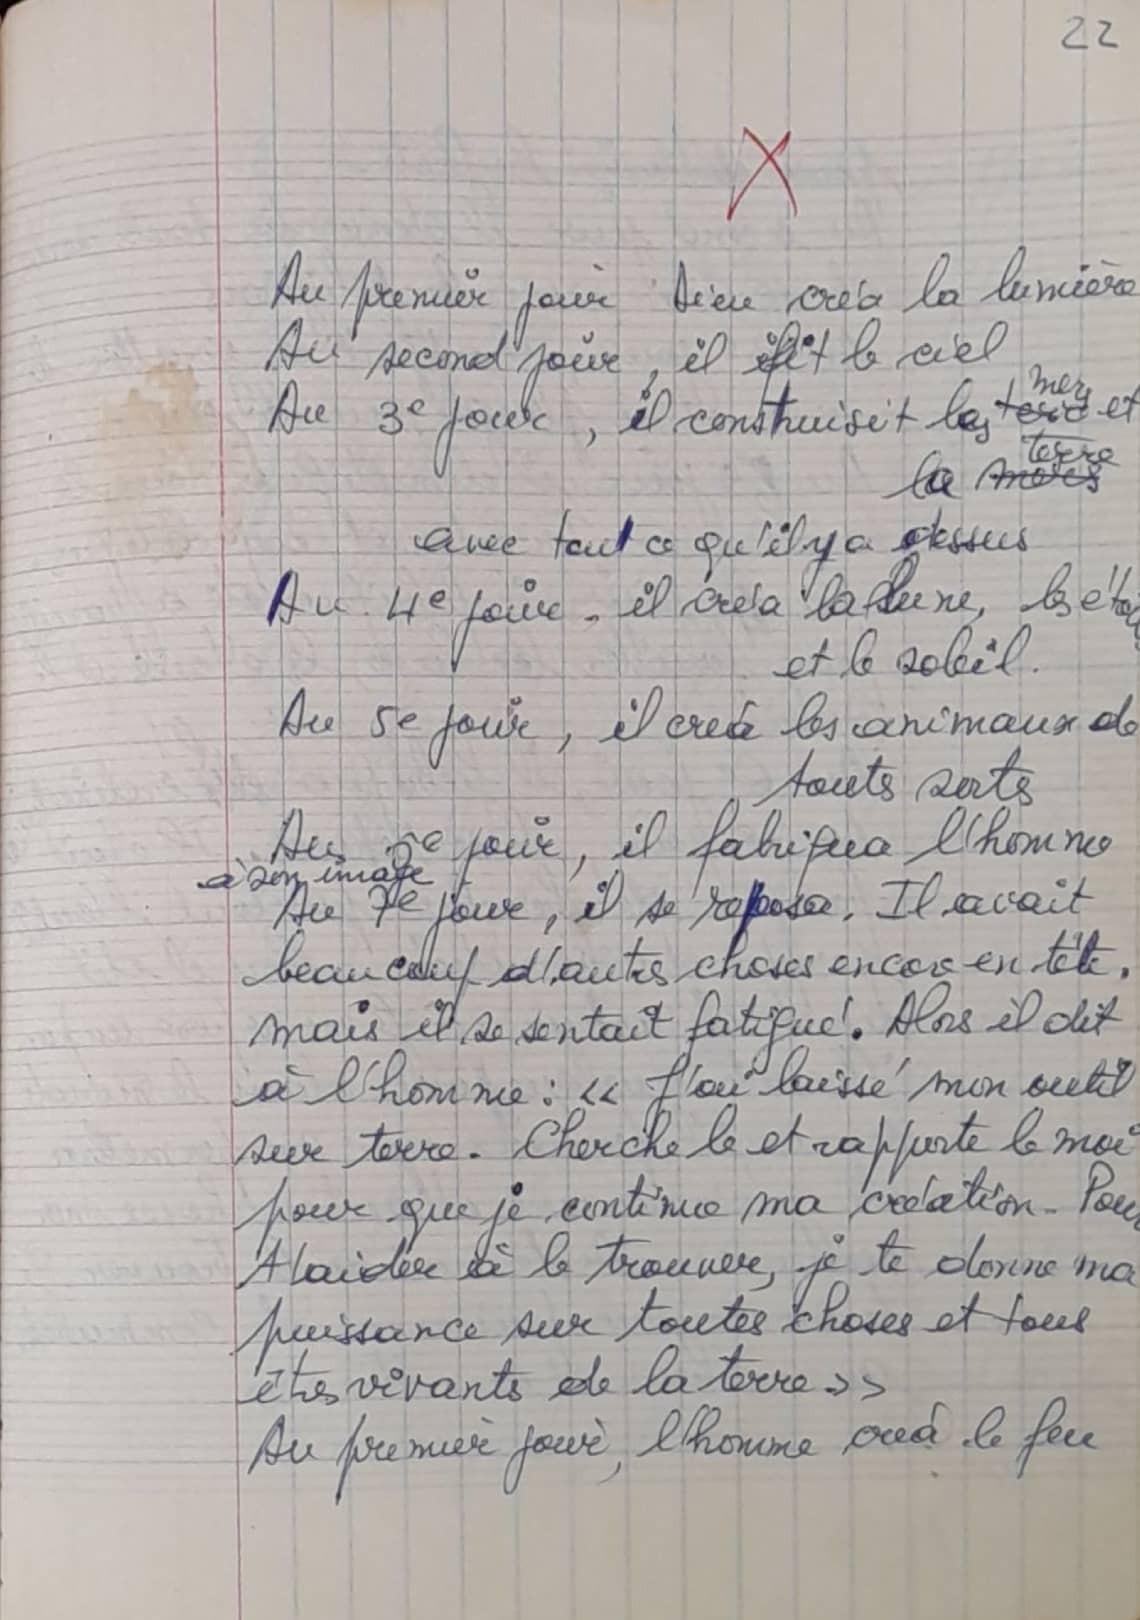 22
X
Au premier jour Dieu créa la lumière
Au second jour, il fit le ciel
Au 3e jour, il construisit les terre mers et
la mers terre
avec tout ce qu'il y a dessus
Au 4e jour, il créa la lune, les
et le soleil.
Au 5e jour, il créa les animaux de
touts sorts
Au jour, il fabriqua l'homme
à son image
Au 7e jour, il se reposa. Il avait
beaucoup d'autres choses encore en tête.
mais il se sentait fatigué. Alors il dit
à l'homme : << J'ai laissé mon outil
sur terre. Cherche le et rapporte le moi
pour que je continue ma création. Pour
t'aider à le trouver, je te donne ma
puissance sur toutes choses et tous
êtres vivants de la terre >>
Au premier jour, l'homme créa le feu